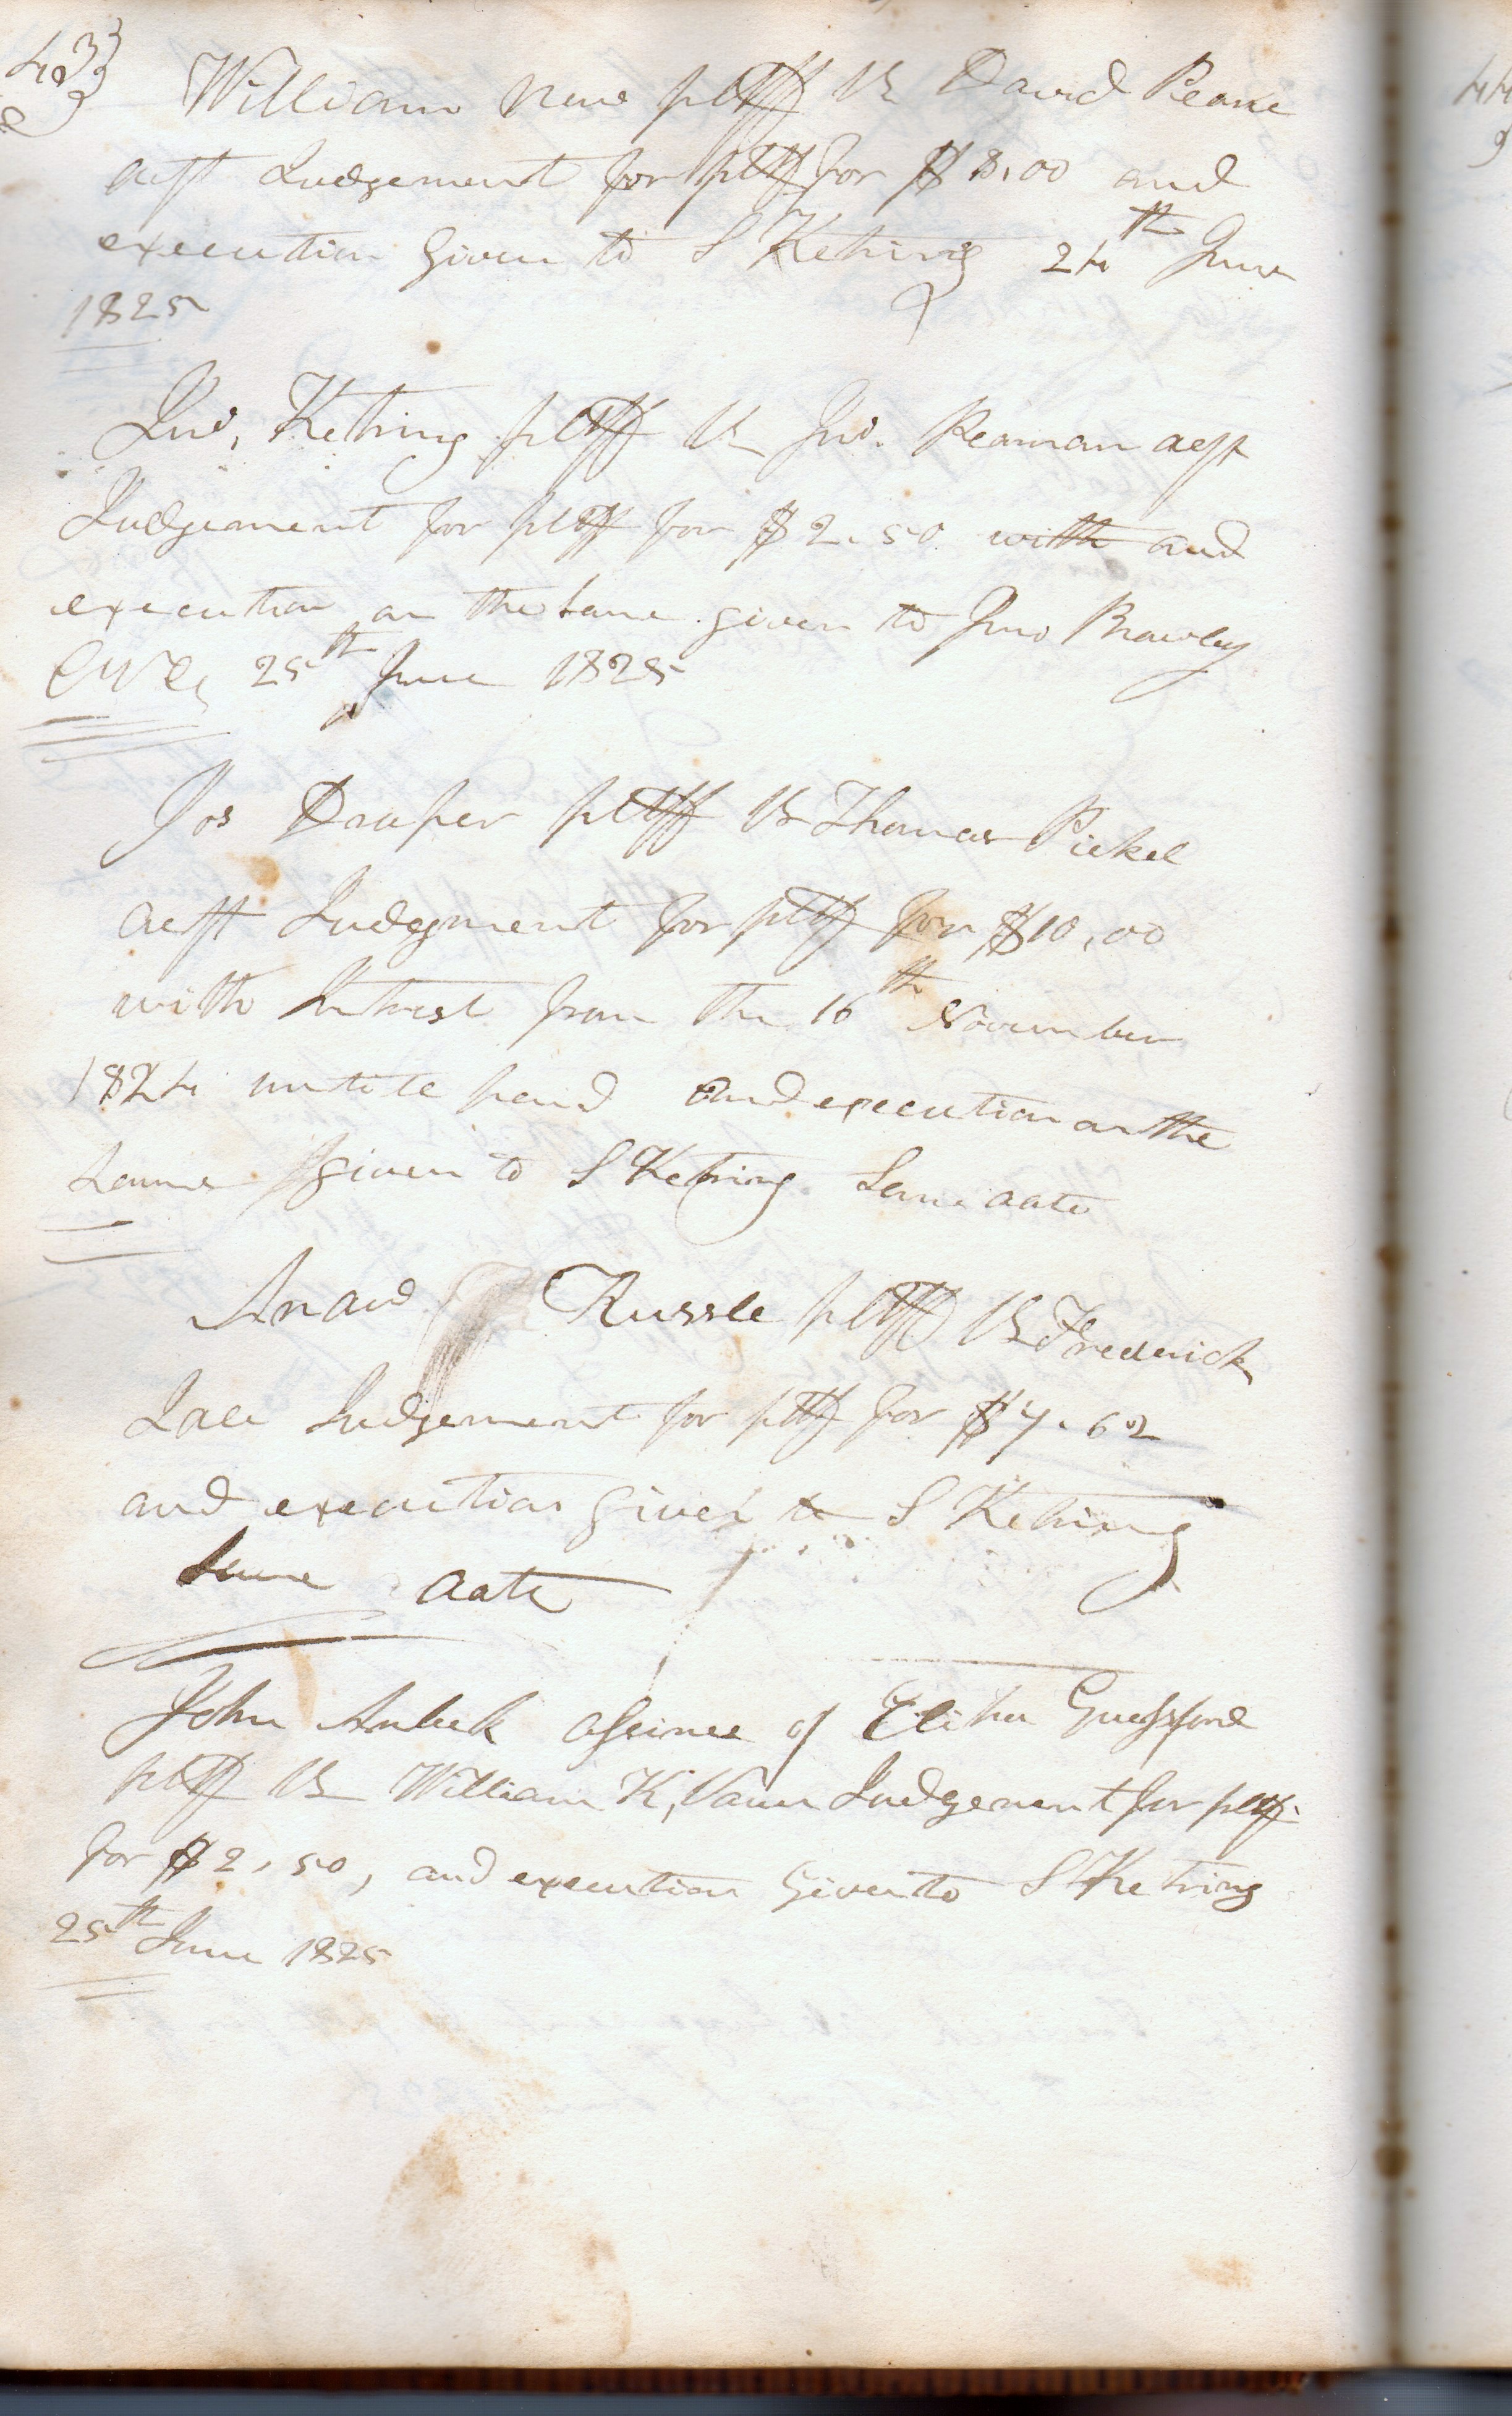 43
William New pltff vs David Pearce
deft Judgement for pltff for $8,00 and
execution Given to S Ketring 24th June
1825
Jno, Ketring pltff vs Jno. Reaman deft
Judgement for pltff for $2.50 with and
execution on the same given to Jno Brawley
25th June 1825
Jos Draper pltff vs Thomas Pickel
deft Judgment for pltff for $10,00
with Intrest from the 16th November
1824 untill paid and execution on the
same given to S Ketring Same date
Andw Russle pltff vs Frederick
Judgement for pltff for $7.62
and execution given to S Ketring
same date
John assinee of Elihu
pltff vs William K, Vann Judgement for pltff
for $2,50, and execution Given to S Ketring
25th June 1825
44